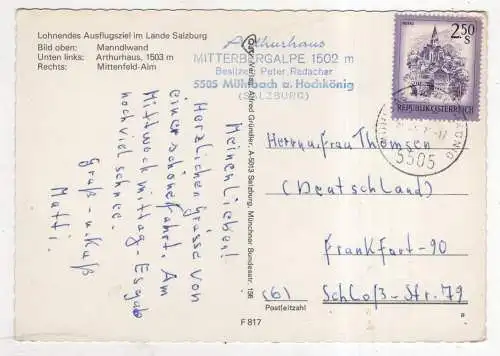 Lohnendes Ausflugsziel im Lande Salzburg
Bild oben: Manndlwand
Unten links: Arthurhaus, 1503 m
Rechts: Mittenfeld-Alm
Arthurhaus
MITTERBERGALPE 1502 m
Besitzer Peter Radacher
5505 Mühlbach a. Hochkönig
(SALZBURG)
2.50
S
REPUBLIK ÖSTERREICH
5505
Meine Lieben!
Herzlichen Grüsse von
einer schönen Fahrt. Am
Mittwoch mittag - Es gab
noch viel schnee.
Gruß - u. Kuß
Matti.
Verlag Alfred Gründler, A-5013 Salzburg, Münchner Bundesstr. 156
Herrn u. Frau Thomsen
(Deutschland)
Frankfurt-90
(6) Schloß-Str. 79
Post(eitzahl)
F 817
P